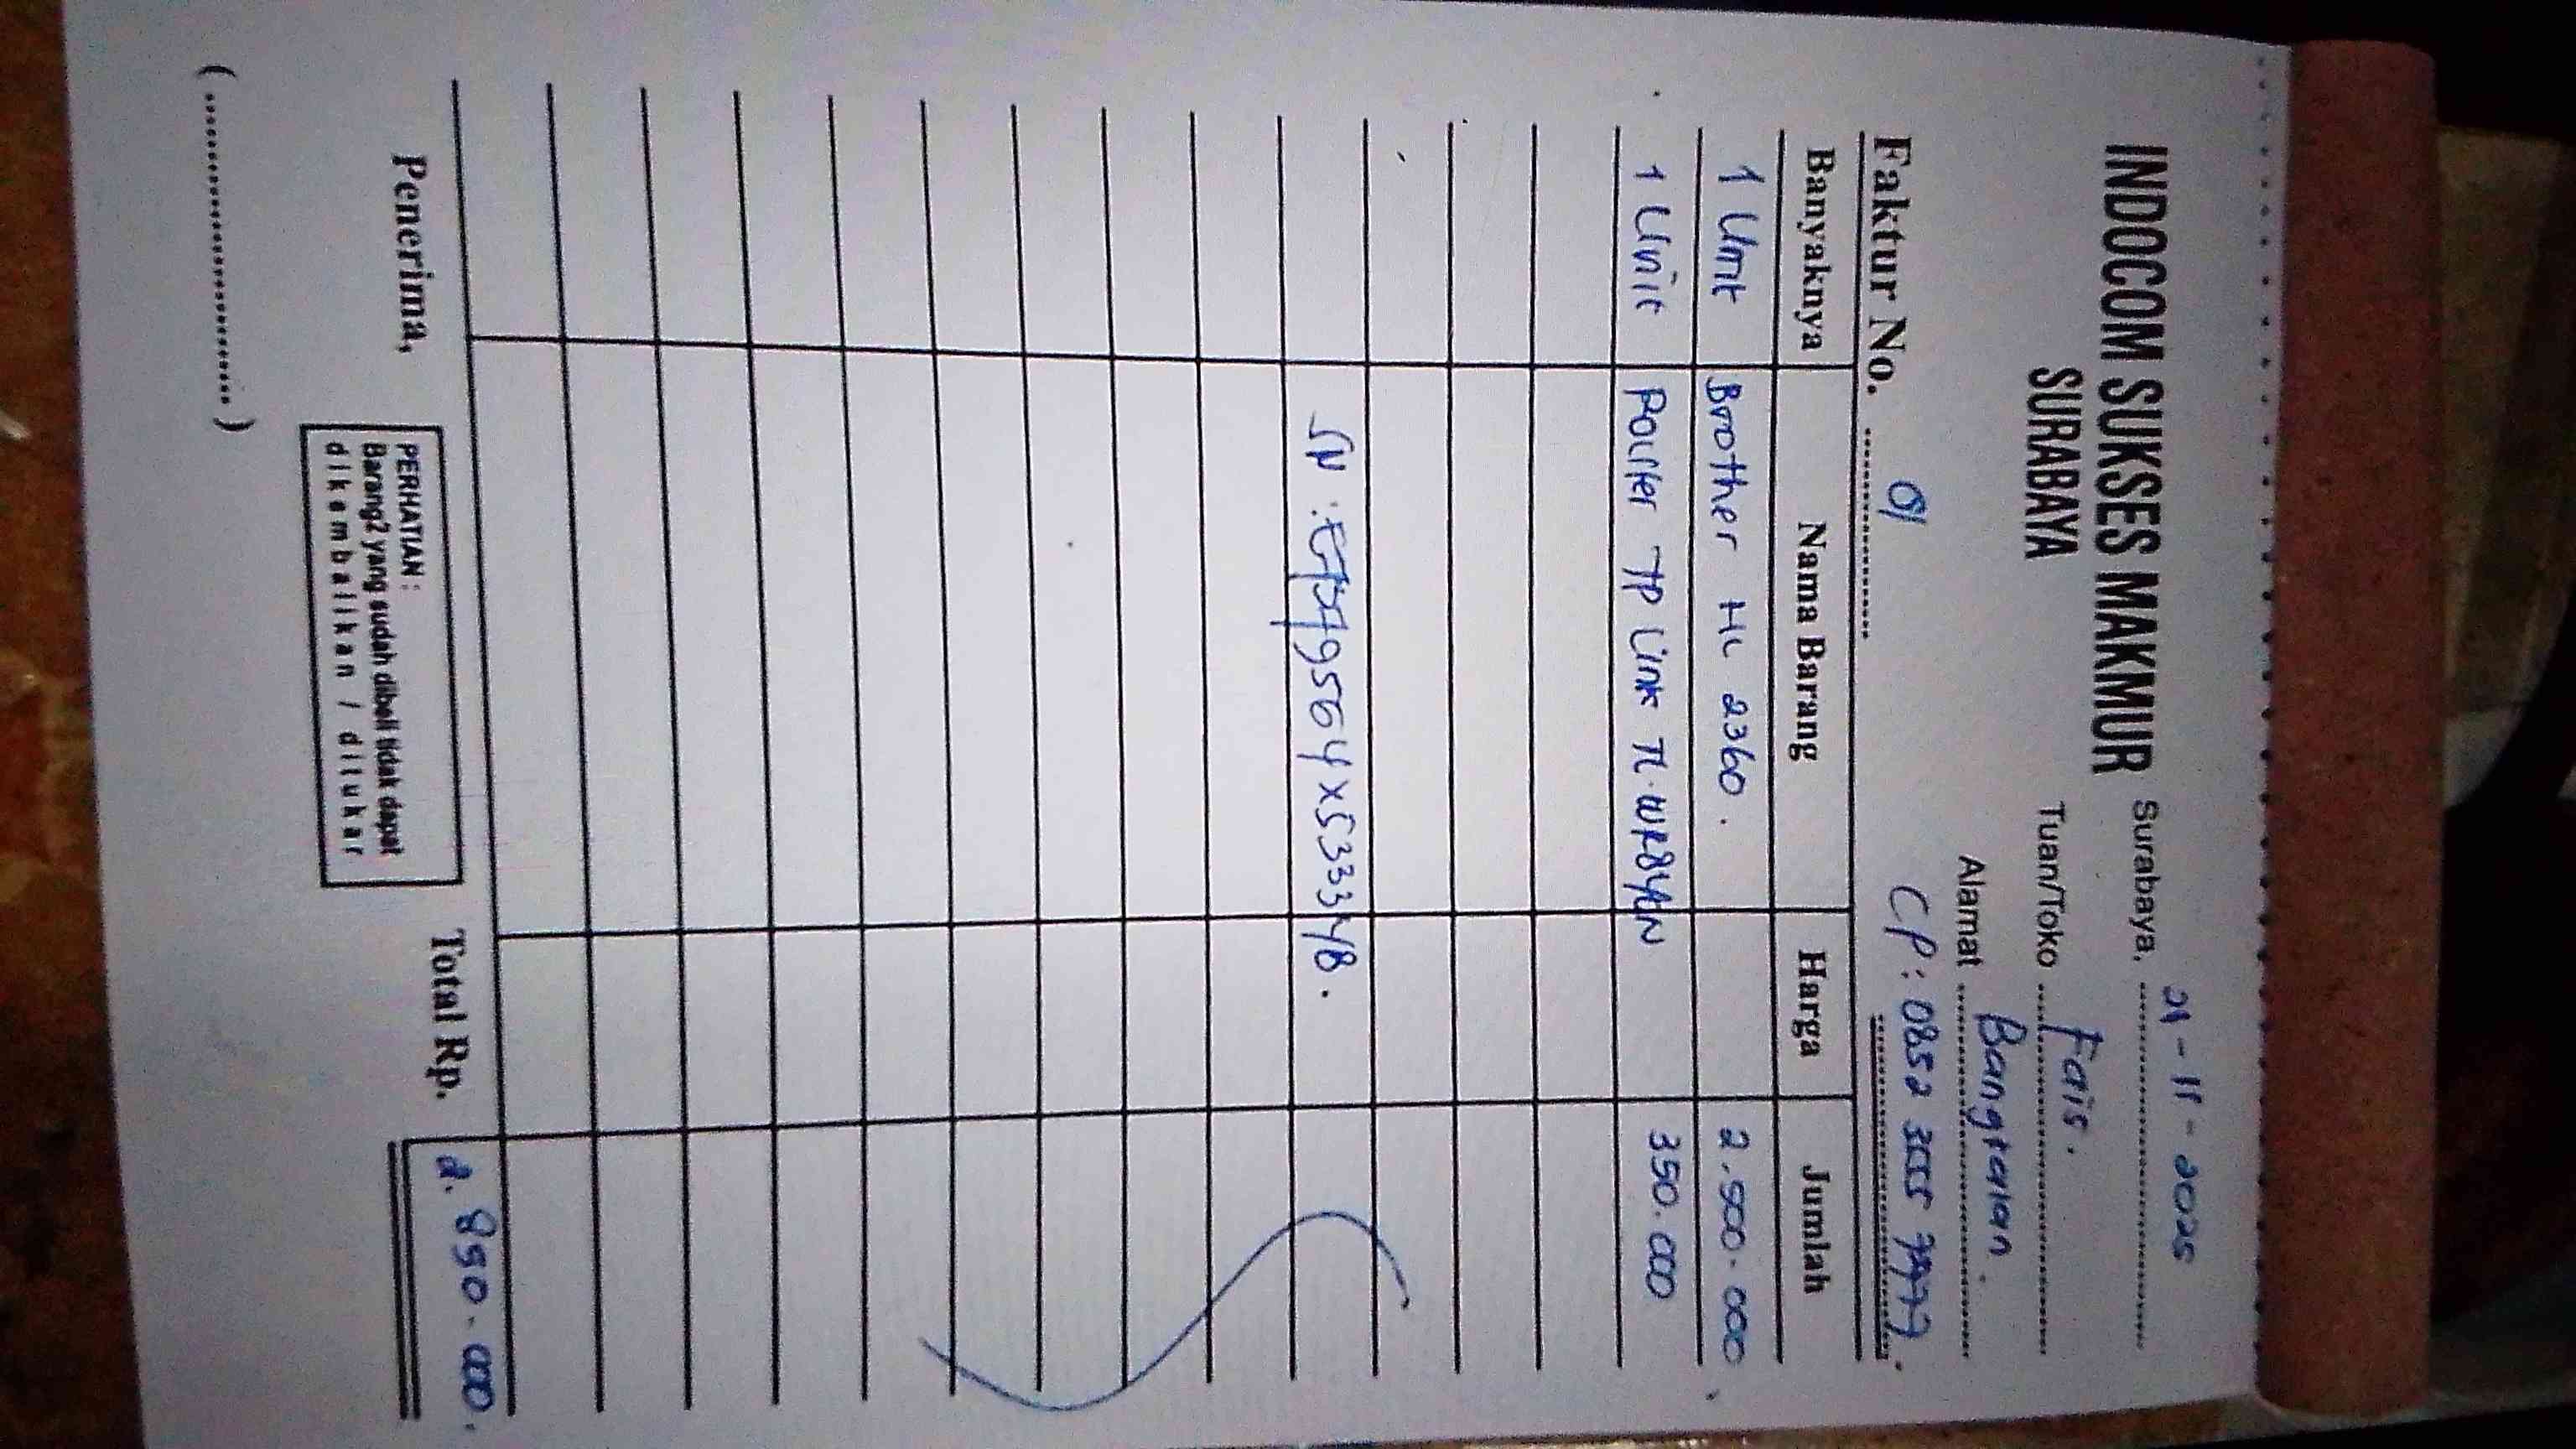 INDOCOM SUKSES MAKMUR
SURABAYA
Surabaya, 21 - 11 - 2025
Tuan/Toko Fais.
Alamat Bangkalan.
CP : 0852 3555 7977.
Faktur No. 01
Banyaknya Nama Barang Harga Jumlah
1 Unit Brother HL 2360. 2.500.000
1 Unit Router TP Link TL.WR84/N 350.000
SN :
Penerima,
PERHATIAN :
Barang2 yang sudah dibeli tidak dapat
dikembalikan / ditukar
Total Rp. 2.850.000.
(....................................)